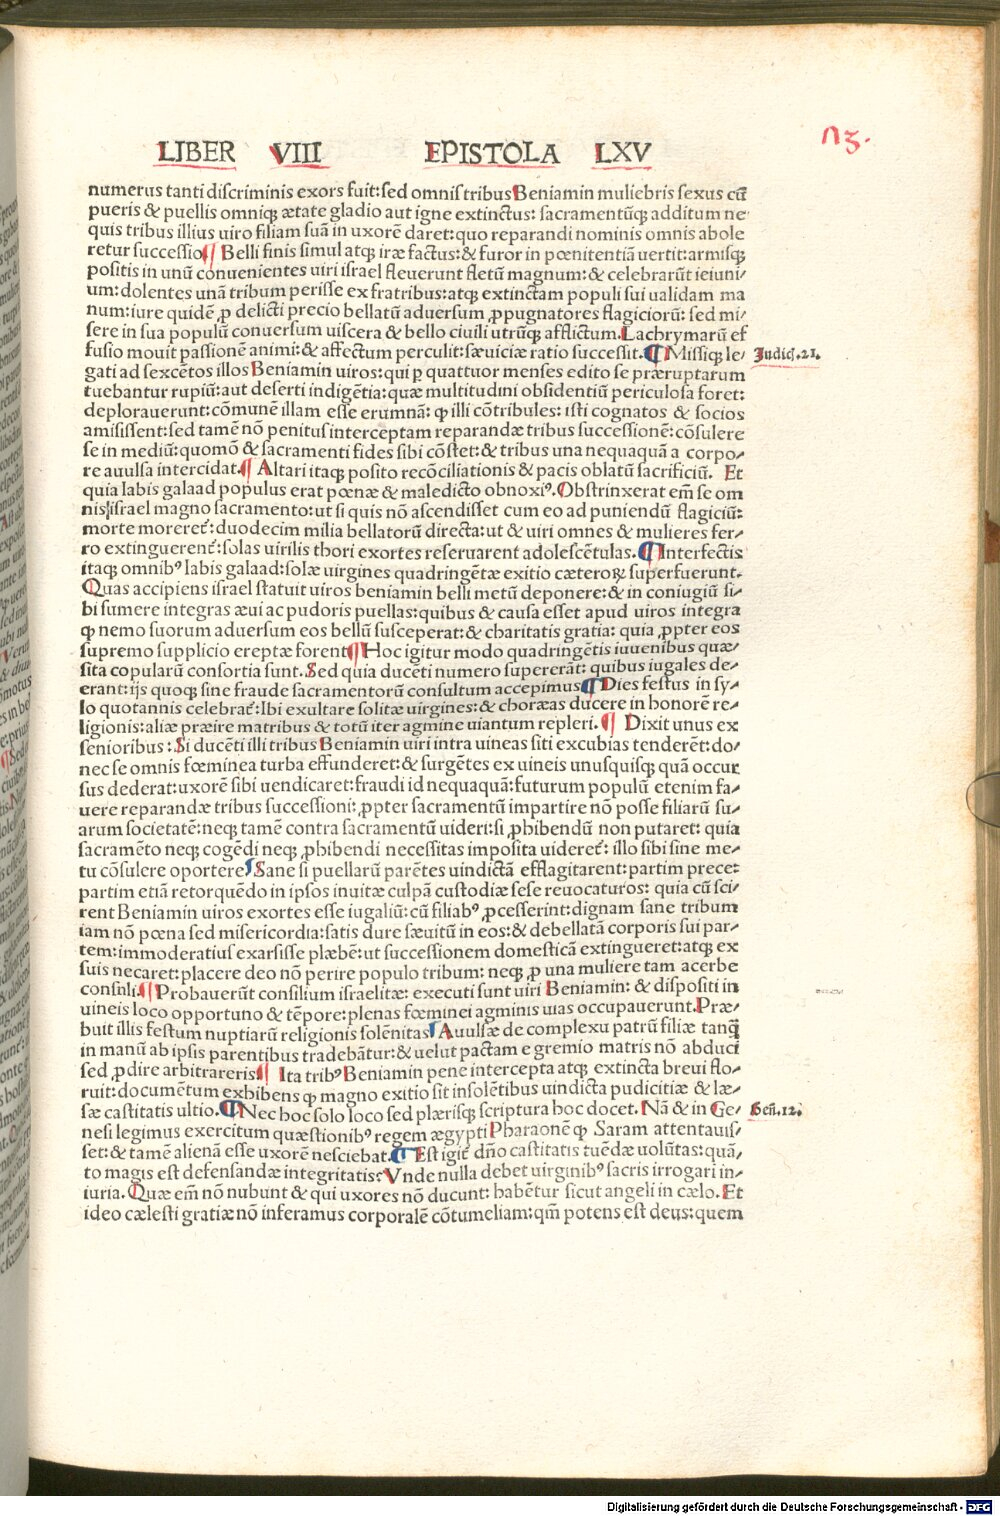 LIBER VIII EPISTOLA LXV
numerus tanti discriminis exors fuit: sed omnis tribus Beniamin muliebris sexus cū
pueris & puellis omniqꝫ ætate gladio aut igne extinctus: sacramentūqꝫ additum ne
quis tribus illius uiro filiam suā in uxorē daret: quo reparandi nominis omnis abole
retur successio ¶ Belli finis simul atqꝫ iræ factus: & furor in pœnitentiā uertit: armisqꝫ
positis in unū conuenientes uiri israel fleuerunt fletū magnum: & celebrarūt ieiuni/
um: dolentes unā tribum perisse ex fratribus: atqꝫ extinctam populi sui ualidam ma
num: iure quidē ꝓ delicti precio bellatū aduersum ꝓpugnatores flagiciorū: sed mi/
sere in sua populū conuersum uiscera & bello ciuili utrūqꝫ afflictum. Lachrymarū ef
fusio mouit passionē animi: & affectum perculit: sæuiciæ ratio successit. ¶ Missiqꝫ le/
Judic̣. 21.
gati ad sexcētos illos Beniamin uiros: qui ꝑ quattuor menses edito se præruptarum
tuebantur rupiū: aut deserti indigētia: quæ multitudini obsidentiū periculosa foret:
deplorauerunt: cōmunē illam esse erumnā: ꝙ illi cōtribules: isti cognatos & socios
amisissent: sed tamē nō penitus interceptam reparandæ tribus successionē: cōsulere
se in mediū: quomō & sacramenti fides sibi cōstet: & tribus una nequaquā a corpo/
re auulsa intercidat. ¶ Altari itaqꝫ posito recōciliationis & pacis oblatū sacrificiū. Et
quia labis galaad populus erat pœnæ & maledicto obnoxiꝰ. Obstrinxerat em̄ se om
nis israel magno sacramento: ut si quis nō ascendisset cum eo ad puniendū flagiciū:
morte moreret᷑: duodecim milia bellatorū directa: ut & uiri omnes & mulieres fer/
ro extinguerent᷑: solas uirilis thori exortes reseruarent adolescētulas. ¶ Interfectis
itaqꝫ omnibꝰ labis galaad: solæ uirgines quadringētæ exitio cæteroꝝ superfuerunt.
Quas accipiens israel statuit uiros beniamin belli metū deponere: & in coniugiū si/
bi sumere integras æui ac pudoris puellas: quibus & causa esset apud uiros integra
ꝙ nemo suorum aduersum eos bellū susceperat: & charitatis gratia: quia ꝓpter eos
supremo supplicio ereptæ forent ¶ Hoc igitur modo quadringētis iuuenibus quæ/
sita copularū consortia sunt. Sed quia ducēti numero supererāt: quibus iugales de/
erant: ijs quoqꝫ sine fraude sacramentorū consultum accepimus ¶ Dies festus in sy/
lo quotannis celebrat᷑: Ibi exultare solitæ uirgines: & choræas ducere in honorē re/
ligionis: aliæ præire matribus & totū iter agmine uiantum repleri. ¶ Dixit unus ex
senioribus: Si ducēti illi tribus Beniamin uiri intra uineas siti excubias tenderēt: do/
nec se omnis fœminea turba effunderet: & surgētes ex uineis unusquisqꝫ quā occur
sus dederat: uxorē sibi uendicaret: fraudi id nequaquā: futurum populū etenim fa/
uere reparandæ tribus successioni: ꝓpter sacramentū impartire nō posse filiarū su/
arum societatē: neqꝫ tamē contra sacramentū uideri: si ꝓhibendū non putaret: quia
sacramēto neqꝫ cogēdi neqꝫ ꝓhibendi necessitas imposita uideret᷑: illo sibi sine me/
tu cōsulere oportere ¶ Sane si puellarū parētes uindictā efflagitarent: partim prece:
partim etiā retorquēdo in ipsos inuitæ culpā custodiæ sese reuocaturos: quia cū sci/
rent Beniamin uiros exortes esse iugaliū: cū filiabꝰ ꝓcesserint: dignam sane tribum
iam nō pœna sed misericordia: satis dure sæuitū in eos: & debellatā corporis sui par/
tem: immoderatius exarsisse plæbē: ut successionem domesticā extingueret: atqꝫ ex
suis necaret: placere deo nō perire populo tribum: neqꝫ ꝓ una muliere tam acerbe
consuli. ¶ Probauerūt consilium israelitæ: executi sunt uiri Beniamin: & dispositi in
uineis loco opportuno & tēpore: plenas fœminei agminis uias occupauerunt. Præ/
buit illis festum nuptiarū religionis solēnitas ¶ Auulsæ de complexu patrū filiæ tanq̄
in manū ab ipsis parentibus tradebātur: & uelut pactam e gremio matris nō abduci
sed ꝓdire arbitrareris ¶ Ita tribꝰ Beniamin pene intercepta atqꝫ extincta breui flo/
ruit: documētum exhibens ꝙ magno exitio sit insolētibus uindicta pudicitiæ & læ/
sæ castitatis ultio. ¶ Nec hoc solo loco sed plærisqꝫ scriptura hoc docet. Nā & in Ge/
Geñ. 12.
nesi legimus exercitum quæstionibꝰ regem ægypti Pharaonē ꝙ Saram attentauis/
set: & tamē alienā esse uxorē nesciebat. ¶ Est igit᷑ dn̄o castitatis tuēdæ uolūtas: quā/
to magis est defensandæ integritatis: Vnde nulla debet uirginibꝰ sacris irrogari in/
iuria. Quæ em̄ nō nubunt & qui uxores nō ducunt: habētur sicut angeli in cælo. Et
ideo cælesti gratiæ nō inferamus corporalē cōtumeliam: qm̄ potens est deus: quem
Digitalisierung gefördert durch die Deutsche Forschungsgemeinschaft - DFG